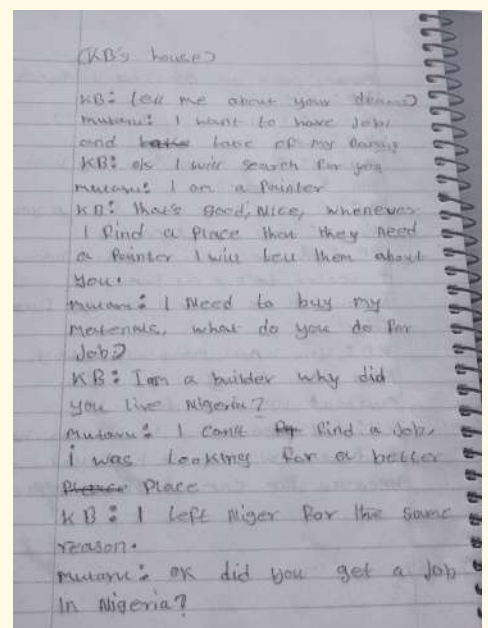 (KB's house)
KB: tell me about your dream?
mutaru: I want to have Job,
and take of my family
KB: ok I will search for you
mutaru: I am a Painter
KB: that's good, Nice, whenever
I find a place that they need
a Painter I will tell them about
you.
mutaru: I Need to buy my
Materials, what do you do for
Job?
KB: I am a builder why did
you live Nigeria?
mutaru: I can't find a Job,
i was looking for a better
Place
KB: I left Niger for the same
reason.
mutaru: ok did you get a Job
in Nigeria?